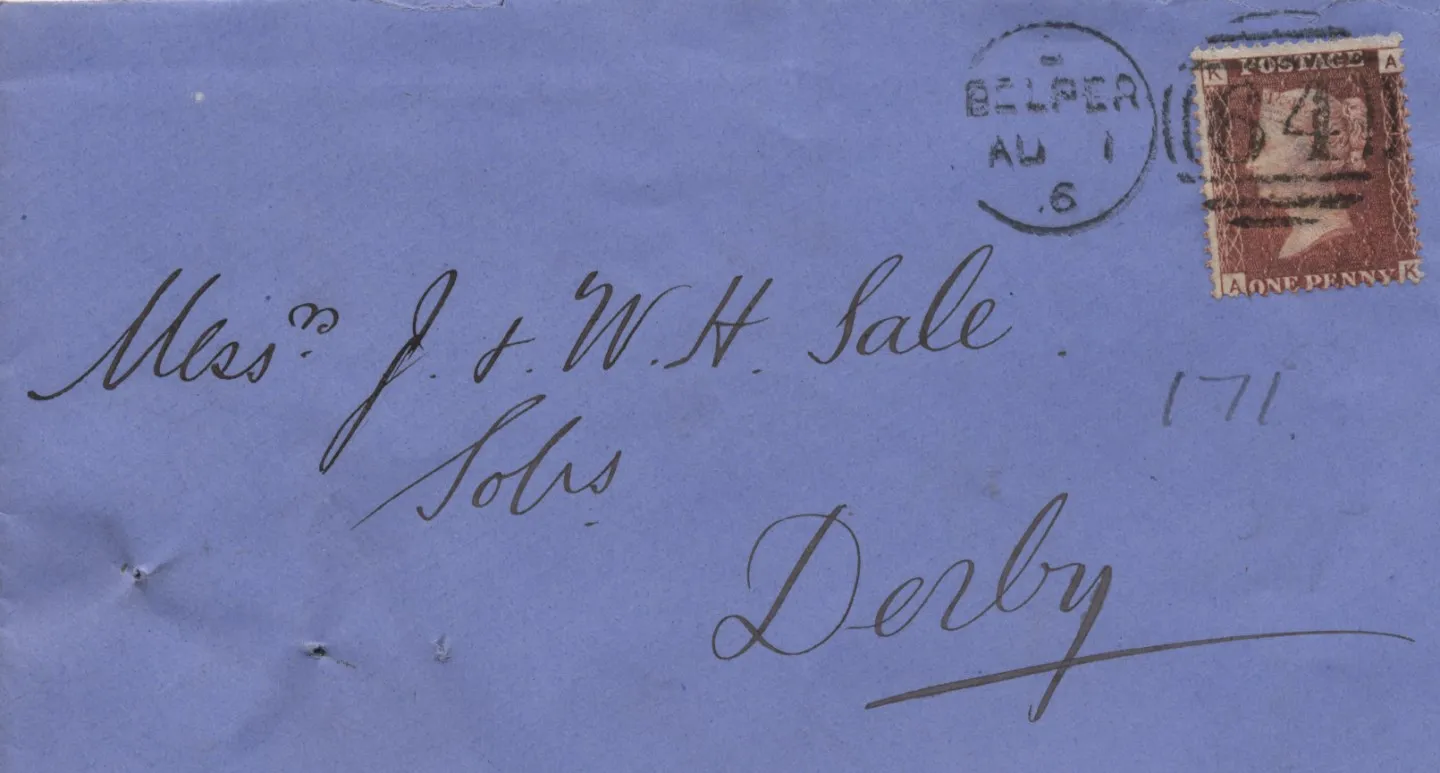 BELPER
AU 1
.6
64
K POSTAGE A
A ONE PENNY K
Messrs. J. & W. H. Sale.
Solrs.
171.
Derby